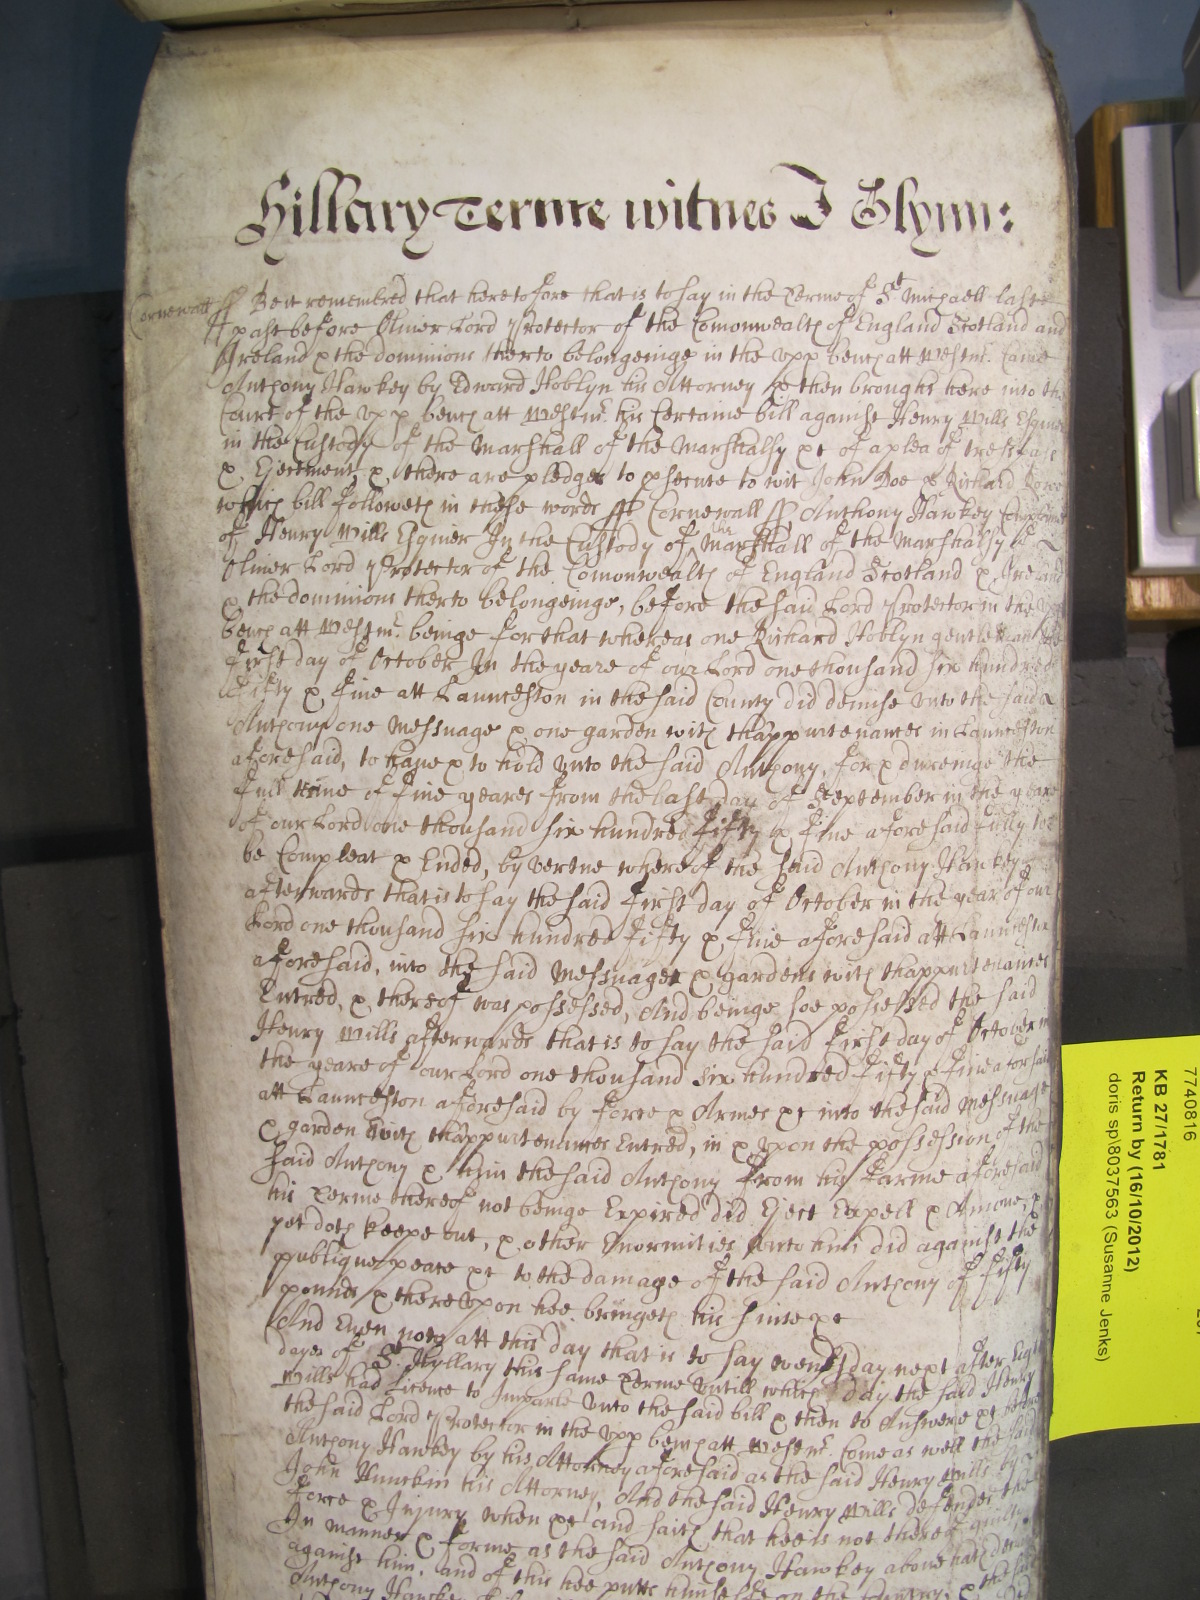 Hillary Terme witnes J Glynn:
Cornewall ss Be it remembred that heretofore that is to say in the Terme of St Michaell last
past before Oliver Lord Protector of the Comonwealth of England Scotland and
Ireland & the dominions therto belongeinge in the vpp bench att Westmr. Came
Anthony Hawkey by Edward Hoblyn his Attorney & then brought here into the
Court of the vpp bench att Westmr. his Certaine bill against Henry Wills Esquier
in the Custody of the Marshall of the Marshalsy &c of a plea of trespasse
& Ejectment & there are pledges to psecute to wit John Doe & Richard Rowe
which bill followeth in these words ss Cornewall ss Anthony Hawkey Complaines
of Henry Wills Esquier In the Custody of the Marshall of the Marshalsy of
Oliver Lord Protector of the Comonwealth of England Scotland & Ireland
& the dominions therto belongeinge, before the said Lord Protector in the vpp
bench att Westmr. beinge for that whereas one Richard Hoblyn gentleman the
First day of October In the yeare of our Lord one thousand six hundred
Fifty & Five att Launceston in the said County did demise vnto the said
Anthony one Messuage & one garden with thappurtenances in Launceston
aforesaid, to have & to hold vnto the said Anthony, for & dureinge the
Full time of Five yeares from the last day of September in the yeare
of our Lord one thousand six hundred Fifty & Five aforesaid fully to
be Compleat & Ended, by vertue whereof the said Anthony Hawkey
afterwards that is to say the said First day of October in the year of our
Lord one thousand six hundred Fifty & Five aforesaid att Launceston
aforesaid, into the said Messuage & gardens with thappurtenances
Entred, & thereof was possessed, And beinge soe possessed the said
Henry Wills afterwards that is to say the said First day of October in
the yeare of our Lord one thousand six hundred Fifty & Five aforesaid
att Launceston aforesaid by Force & Armes &c into the said Messuage
& garden with thappurtenances Entred, in & vpon the possession of the
said Anthony & him the said Anthony From his Farme aforesaid
his Terme thereof not beinge Expired did Eject Expell & Amove, &
yet doth keepe out, & other Enormities vnto him did against the
publique peace &c to the damage of the said Anthony of Fifty
pounds & therevpon hee bringeth his suite &c
And Even now att this day that is to say wensday next after Eight
dayes of St Hyllary this same Terme vntill which day the said Henry
Wills had Licence to Imparle vnto the said bill & then to Answere &c before
the said Lord Protector in the vpp bench att Westmr. Come as well the said
Anthony Hawkey by his Attorney aforesaid as the said Henry Wills by
John Hunckin his Attorney, And the said Henry Wills defendes the
Force & Injury when &c and saith that hee is not thereof guilty
In manner & forme as the said Anthony Hawkey above hath
against him. and of this hee putts himselfe on the Country, & the said
Anthony Hawkey
7740816
KB 27/1781
Return by (16/10/2012)
doris sp\8037563 (Susanne Jenks)